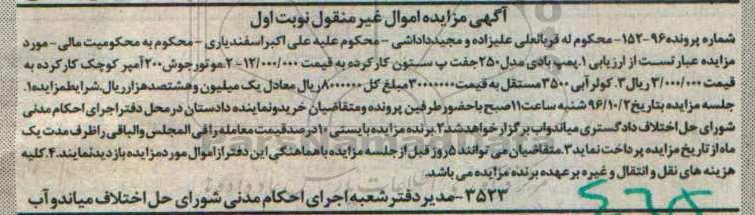 آگهی مزایده اموال غیر منقول نوبت اول
شماره پرونده ۹۶-۱۵۲- محکوم له قربانعلی علیزاده و مجید داداشی - محکوم علیه علی اکبر اسفندیاری - محکوم به محکومیت مالی - مورد
مزایده عبارتست از ارزیابی ۱.پمپ بادی مدل ۲۵۰ جفت پ سستون کارکرده به قیمت ۱۲/۰۰۰/۰۰۰-۲.موتور جوش ۲۰۰ آمپر کوچک کارکرده به
قیمت ۳/۰۰۰/۰۰۰ ریال ۳.کولر آبی ۳۵۰۰ مستقل به قیمت ۳۰۰۰۰۰۰ مبلغ کل ۸۰۰۰۰۰۰ ریال معادل یک میلیون و هشتصد هزار ریال.شرایط مزایده ۱.
جلسه مزایده بتاریخ ۹۶/۱۰/۲ شنبه ساعت ۱۱ صبح باحضور طرفین پرونده و متقاضیان خرید و نماینده دادستان در محل دفتر اجرای احکام مدنی
شورای حل اختلاف دادگستری میاندواب برگزار خواهد شد ۲.برنده مزایده بایستی ۱۰ درصد قیمت معامله را فی المجلس و الباقی را ظرف مدت یک
ماه از تاریخ مزایده پرداخت نماید ۳.متقاضیان می توانند ۵ روز قبل از جلسه مزایده با هماهنگی این دفتر از اموال مورد مزایده بازدید نمایند.۴.کلیه
هزینه های نقل و انتقال و غیره بر عهده برنده مزایده می باشد.
۳۵۲۳- مدیر دفتر شعبه اجرای احکام مدنی شورای حل اختلاف میاندوآب